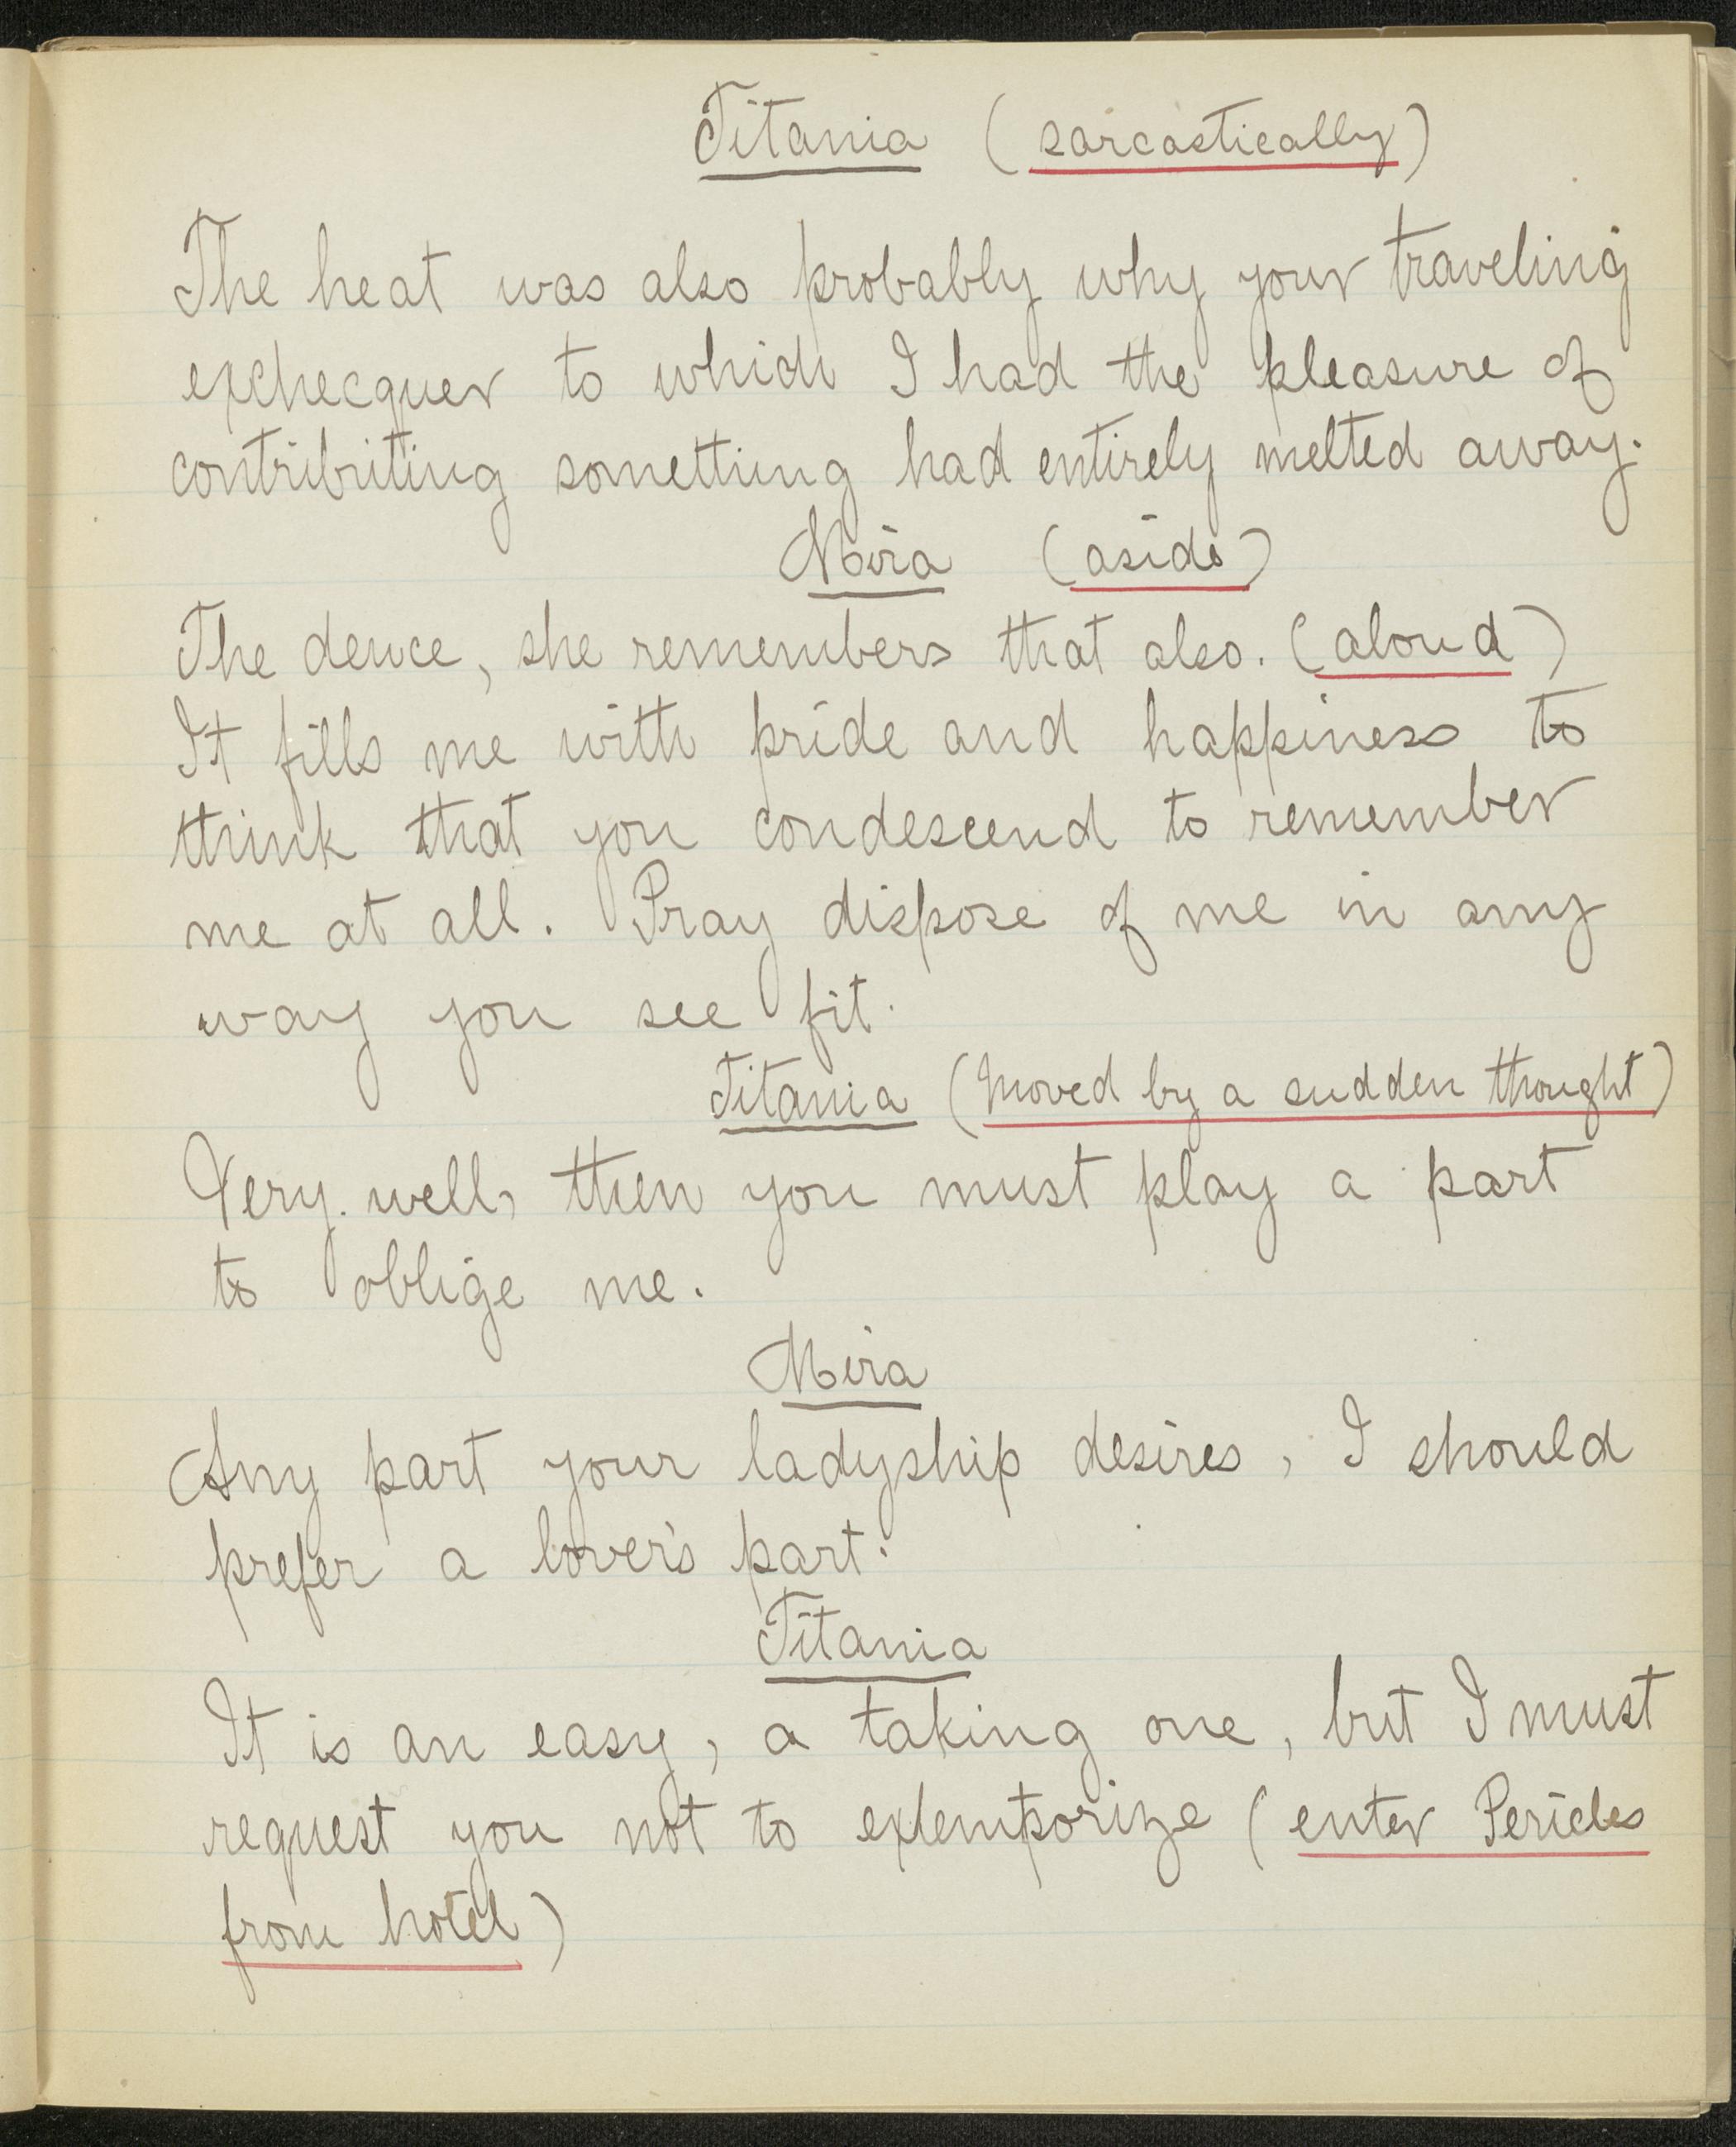 Titania (sarcastically)
The heat was also probably why your traveling
exchecquer to which I had the pleasure of
contributing something had entirely melted away.
Mira (aside)
The deuce, she remembers that also. (aloud)
It fills me with pride and happiness to
think that you condescend to remember
me at all. Pray dispose of me in any
way you see fit.
Titania (moved by a sudden thought)
Very well, then you must play a part
to oblige me.
Mira
Any part your ladyship desires, I should
prefer a lover's part.
Titania
It is an easy, a taking one, but I must
request you not to extemporize (enter Pericles
from hotel)